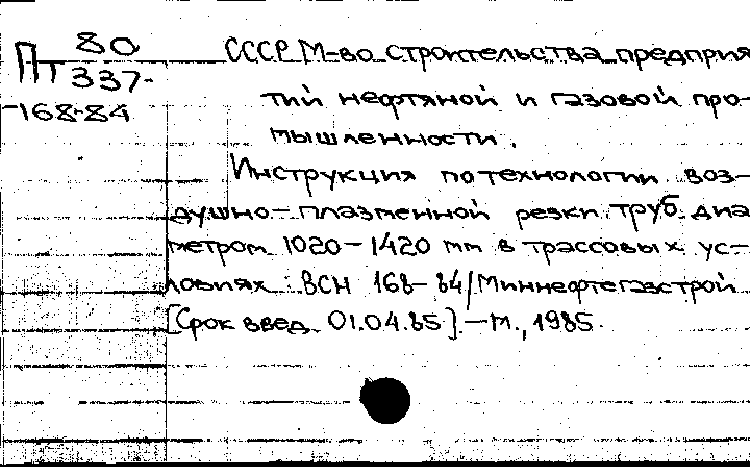 Пт 80
337-
-168-84
СССР М-во строительства предприя
тий нефтяной и газовой про-
мышленности.
Инструкция по технологии воз-
душно-плазменной резки труб диа
метром 1020-1420 мм в трассовых ус-
ловиях: ВСН 168-84/Миннефтегазстрой
[Срок введ. 01.04.85].-М., 1985.